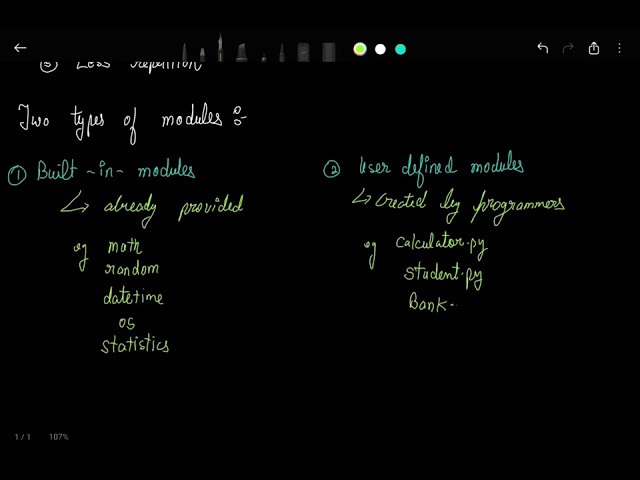 ③ Less repetition
Two types of modules :-
① Built-in-modules
↳ already provided
eg math
random
datetime
os
statistics
② User defined modules
↳ Created by programmers
eg Calculator.py
Student.py
Bank.
1 / 1 107%